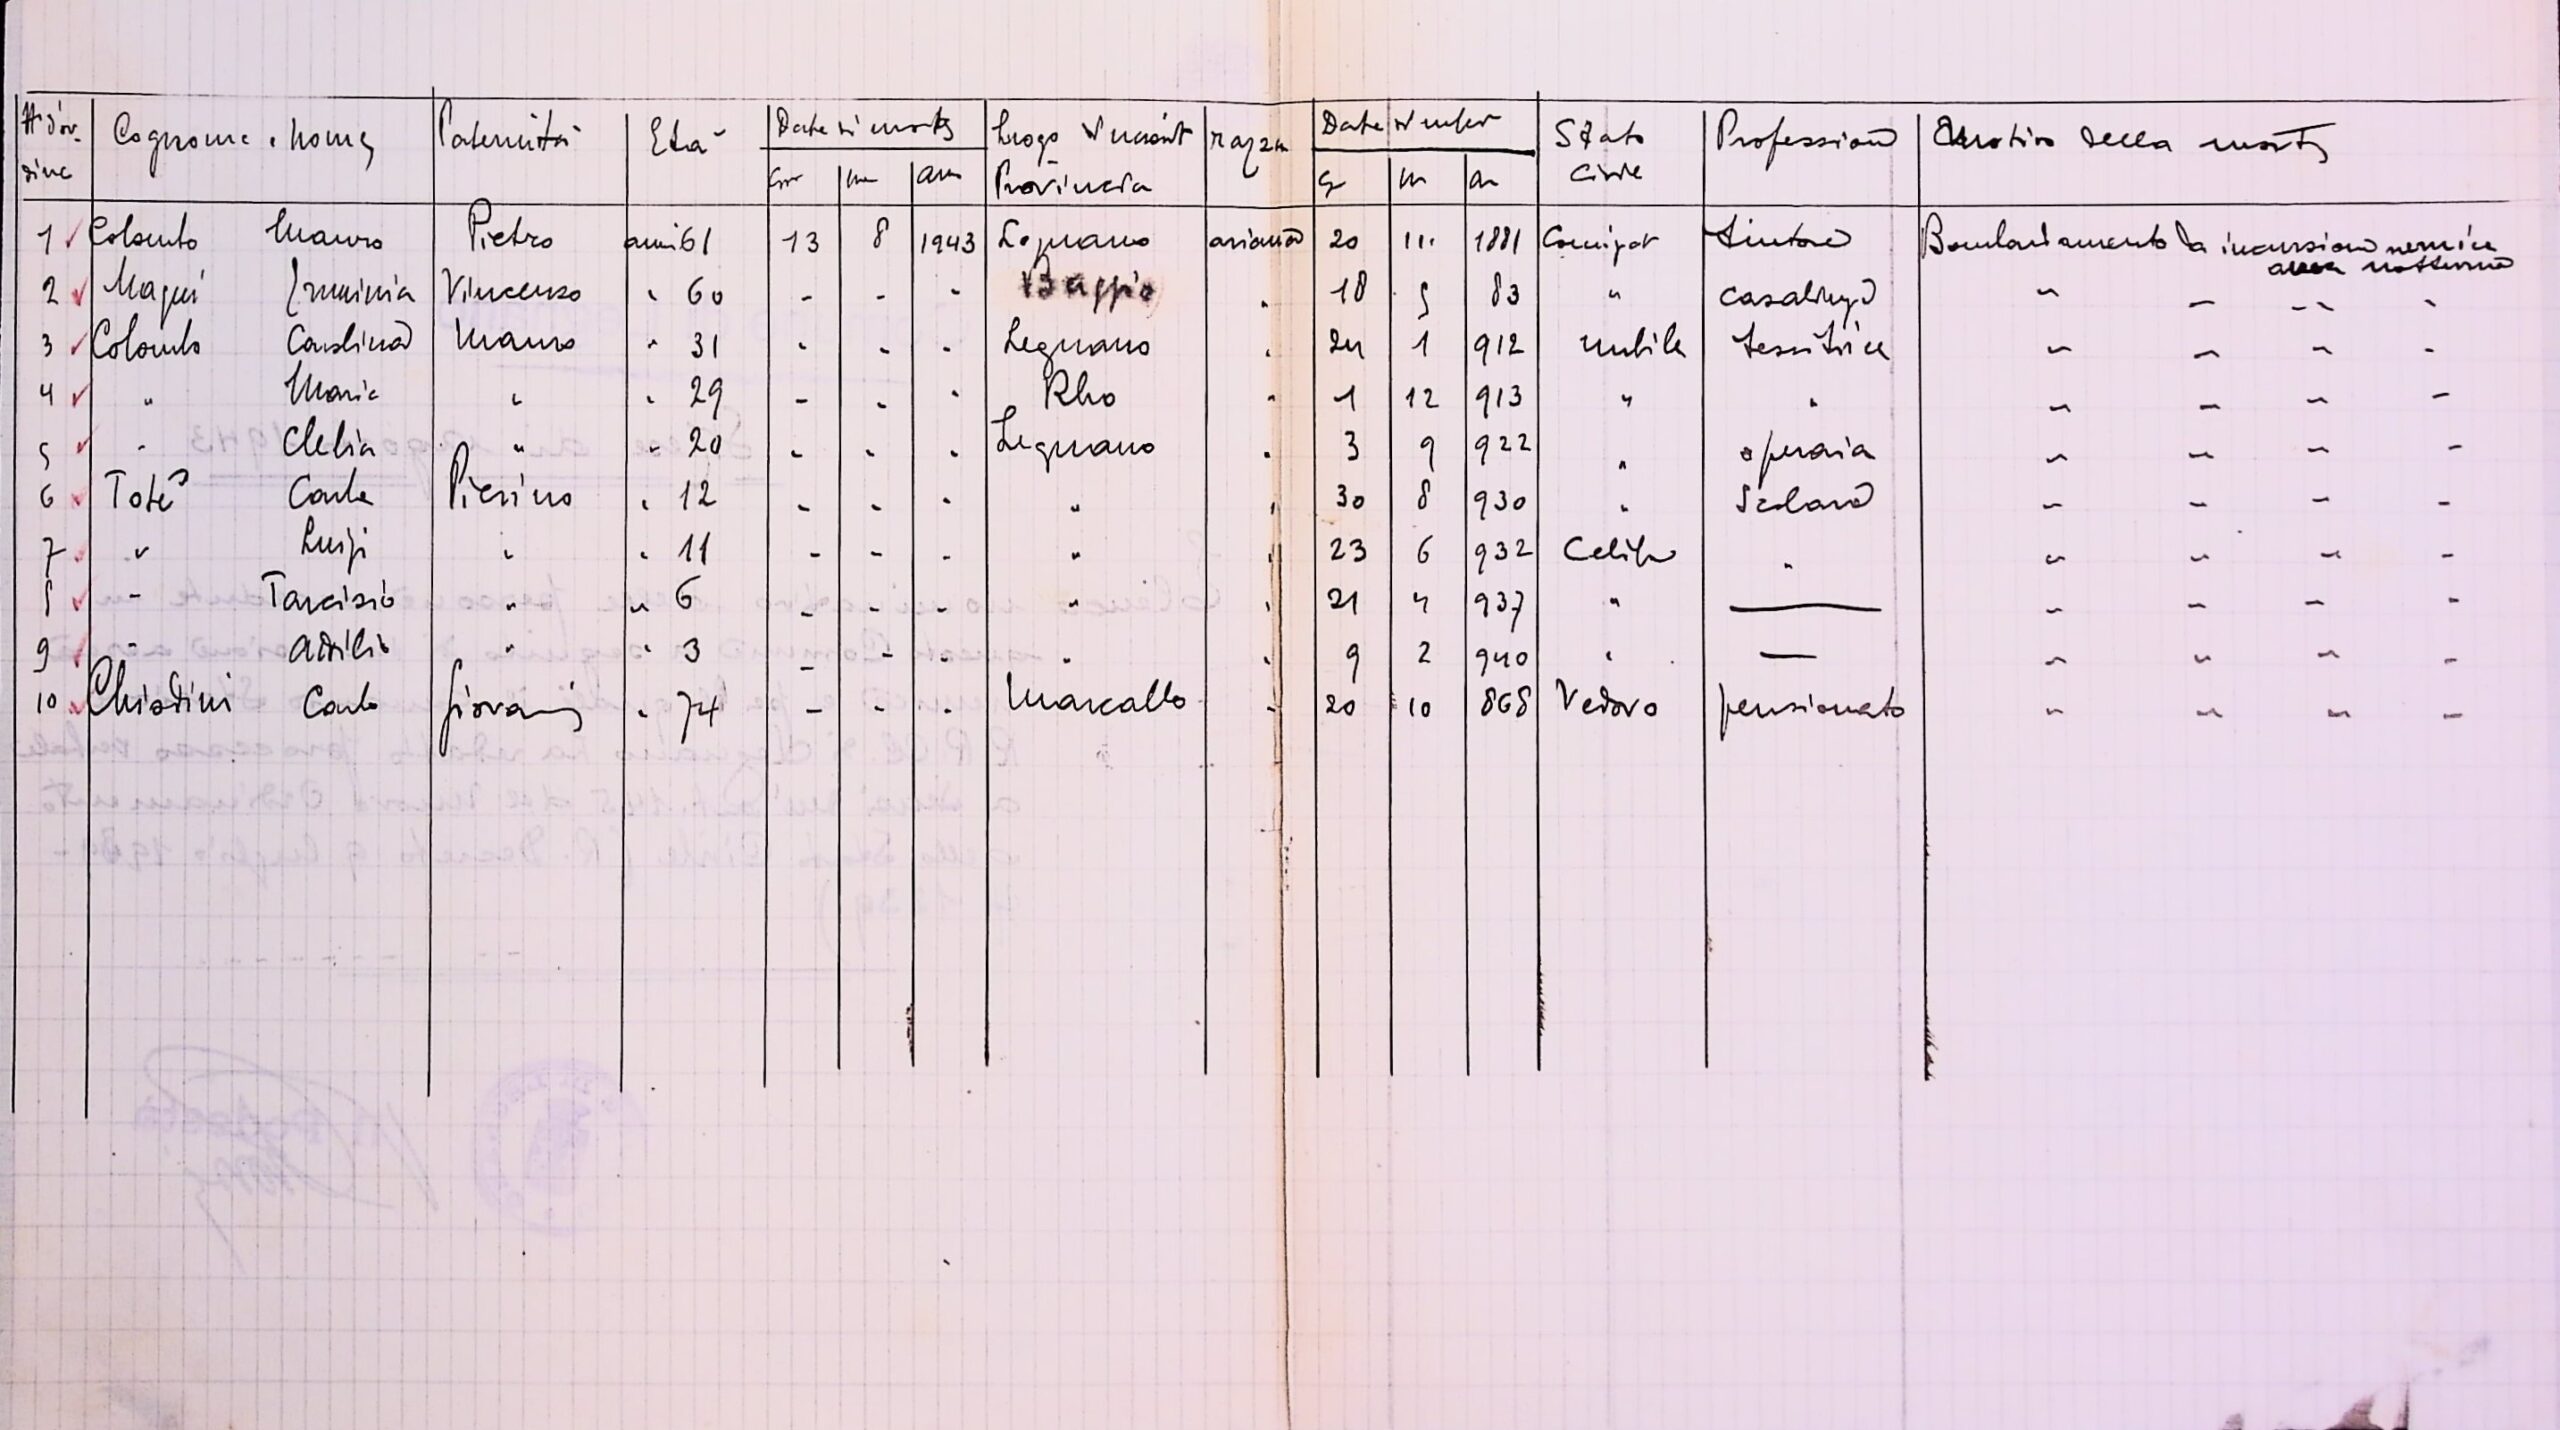 N° d'or- Cognome e nome Paternità Età Data di morte Luogo di nascit razza Data di nascit Stato Professione Motivo della morte
dine Provincia civile
1 Colombo Mauro Pietro anni 61 13 8 1943 Legnano ariana 20 III 1881 Coniugat tintore Bombardamento da incursione nemica
aerea notturna
2 Magni Erminia Vincenzo " 60 - - - Baggio " 18 5 83 " casalinga " - - -
3 Colombo Carolina Mauro " 31 - - - Legnano " 24 1 912 nubile tessitrice " - - -
4 " Maria " " 29 - - - Rho " 1 12 913 " " " - - -
5 " Clelia " " 20 - - - Legnano " 3 9 922 " operaia " - - -
6 Tote' Carla Pierino " 12 - - - " " 30 8 930 " Scolara " - - -
7 " Luigi " " 11 - - - " " 23 6 932 Celibe " " - - -
8 " Tarcisio " " 6 - - - " " 21 4 937 " — " - - -
9 " Attilio " " 3 - - - " " 9 2 940 " — " - - -
10 Chiodini Carlo Giovanni " 74 - - - Marcallo " 20 10 868 Vedovo pensionato " - - -